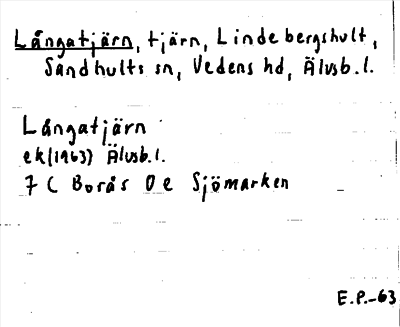 Långatjärn, tjärn, Lindebergshult,
Sandhults sn, Vedens hd, Älvsb.l.
Långatjärn
ek(1963) Älvsb.l.
7 C Borås 0 e Sjömarken
E.P.-63